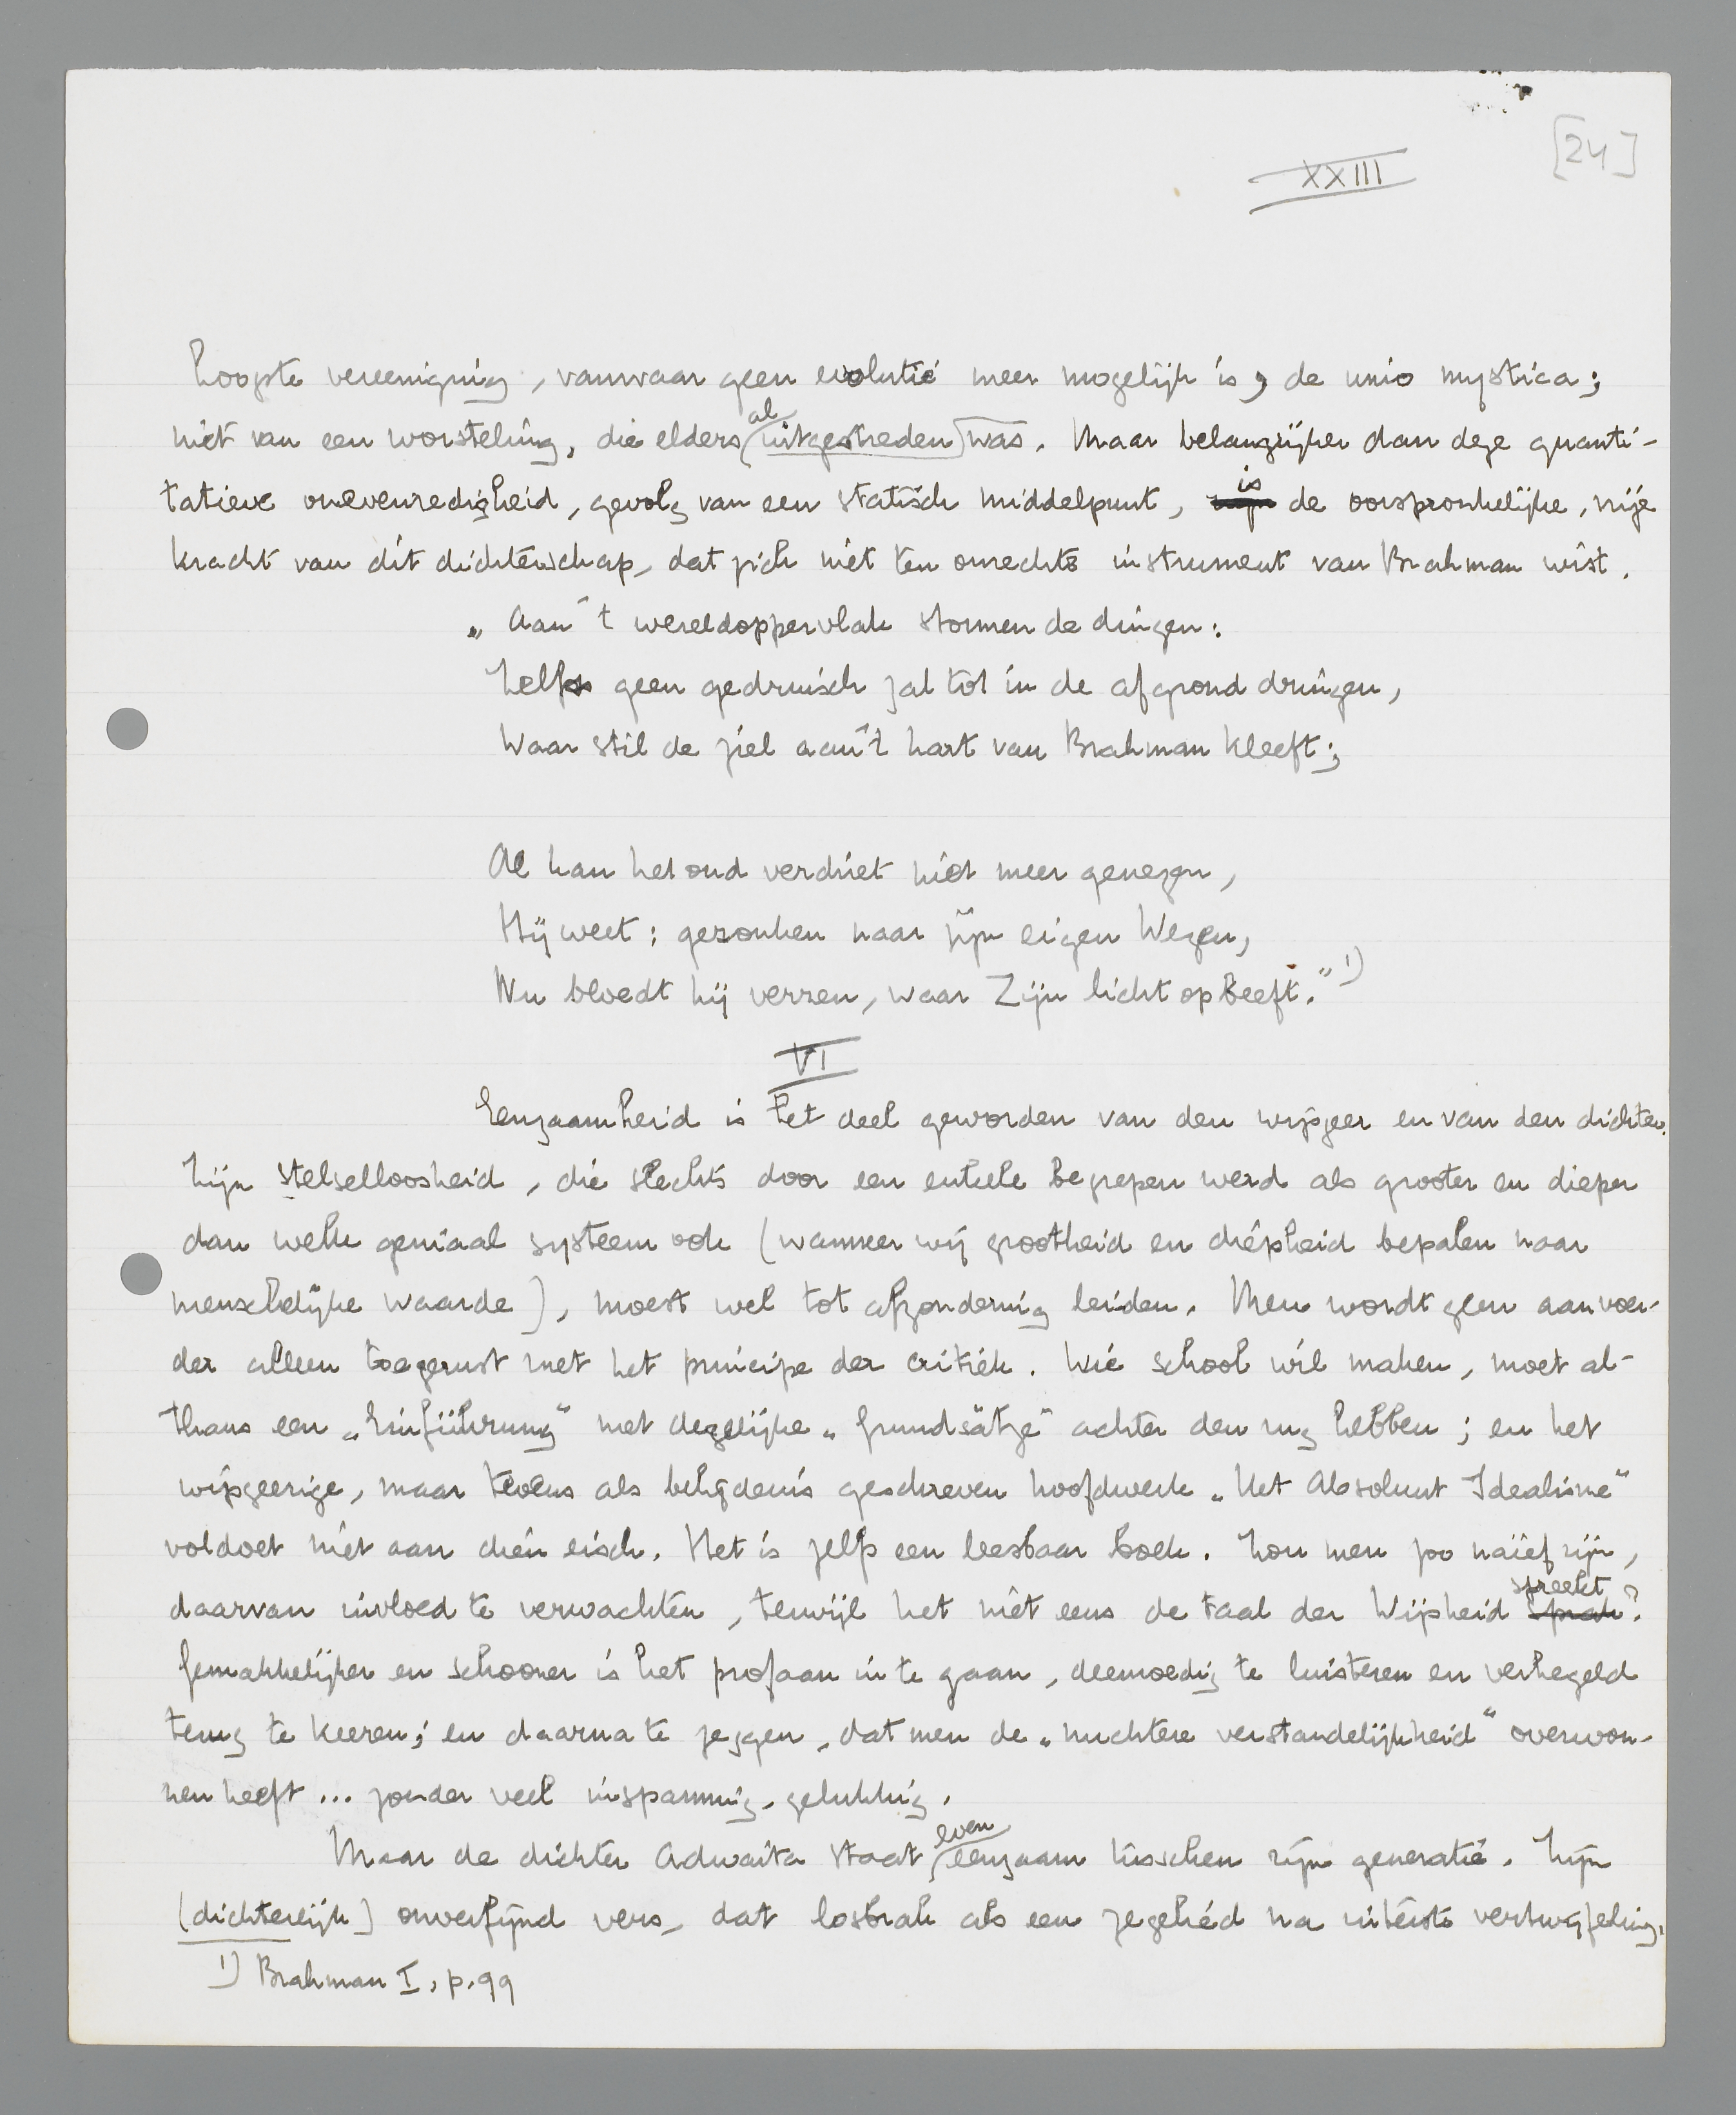 [24]
XXIII
hoogste vereeniging, vanwaar geen evolutie meer mogelijk is, de unio mystica;
niet van een worsteling, die elders al uitgestreden was. Maar belangrijker dan deze quanti-
tatieve onevenredigheid, gevolg van een statisch middelpunt, is de oorspronkelijke, vrije
kracht van dit dichterschap, dat zich niet ten onrechte instrument van Brahman wist.
„Aan 't wereldoppervlak stormen de dingen:
Zelfs geen gedruisch zal tot in de afgrond dringen,
Waar stil de ziel aan 't hart van Brahman kleeft;
Al kan het oud verdriet niet meer genezen,
Hij weet: gezonken naar zijn eigen Wezen,
Nu bloedt hij verzen, waar Zijn licht op beeft." 1)
VI
Eenzaamheid is het deel geworden van den wijsgeer en van den dichter.
Zijn stelselloosheid, die slechts door een enkele begrepen werd als grooter en dieper
dan welk geniaal systeem ook (wanneer wij grootheid en diepheid bepalen naar
menschelijke waarde), moest wel tot afzondering leiden. Men wordt geen aanvoer-
der alleen toegerust met het principe der critiek. Wie school wil maken, moet al-
thans een „Einführung" met degelijke „Grundsätze" achter den rug hebben; en het
wijsgeerige, maar tevens als belijdenis geschreven hoofdwerk „Het Absoluut Idealisme"
voldoet niet aan dien eisch. Het is zelfs een leesbaar boek. Zou men zoo naïef zijn,
daarvan invloed te verwachten, terwijl het niet eens de taal der Wijsheid spreekt?
Gemakkelijker en schooner is het profaan in te gaan, deemoedig te luisteren en verhegeld
terug te keeren; en daarna te zeggen, dat men de „nuchtere verstandelijkheid" overwon-
nen heeft ... zonder veel inspanning, gelukkig.
Maar de dichter Adwaita staat even eenzaam tusschen zijn generatie. Zijn
(dichterlijk) onverfijnd vers, dat losbrak als een zegelied na uiterste vertwijfeling,
1) Brahman I, p. 99